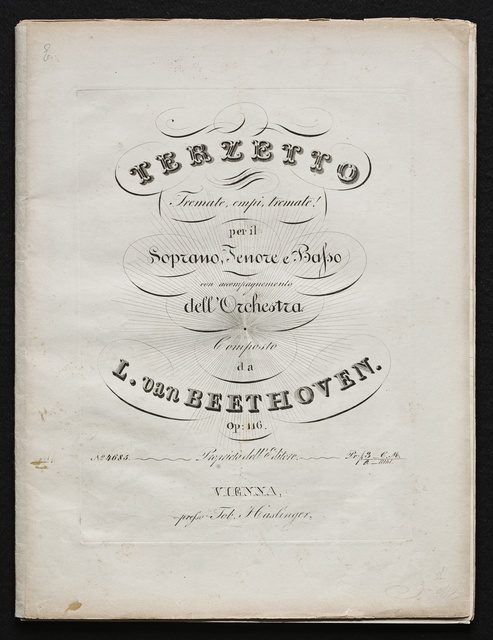 8
TERZETTO
Tremate, empi, tremate!
per il
Soprano, Tenore e Baſso
con accompagnemento
dell'Orchestra.
Composto
da
L. van BEETHOVEN.
Op: 116.
No 4685. Proprietà dell'Editore. Pr.
VIENNA,
preſso Tob. Haslinger,